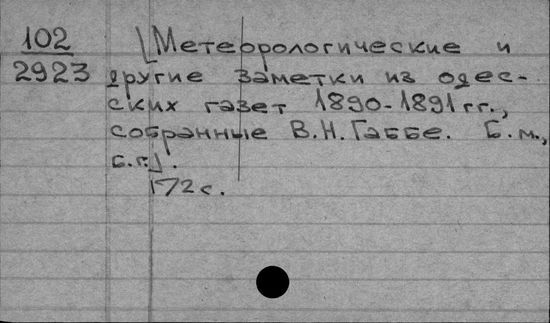 102
2923
[Метеорологические и
другие заметки из одес-
ских газет 1890-1891 гг.,
собранные В.Н. Габбе. Б.м.,
б.г.].
172 с.